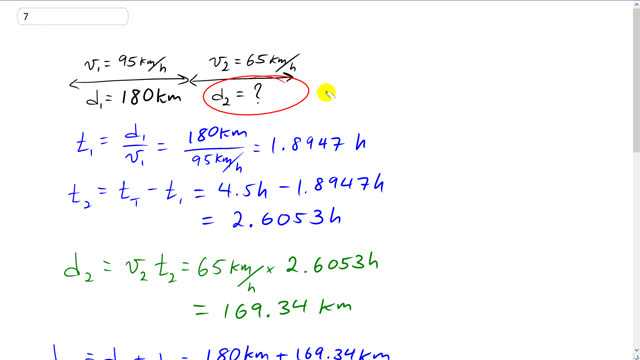 7
v₁ = 95 km/h v₂ = 65 km/h
d₁ = 180 km d₂ = ?
t₁ = d₁/v₁ = 180 km / 95 km/h = 1.8947 h
t₂ = t_T − t₁ = 4.5h − 1.8947h
= 2.6053h
d₂ = v₂ t₂ = 65 km/h × 2.6053h
= 169.34 km
= d + = 180km + 169.34 km